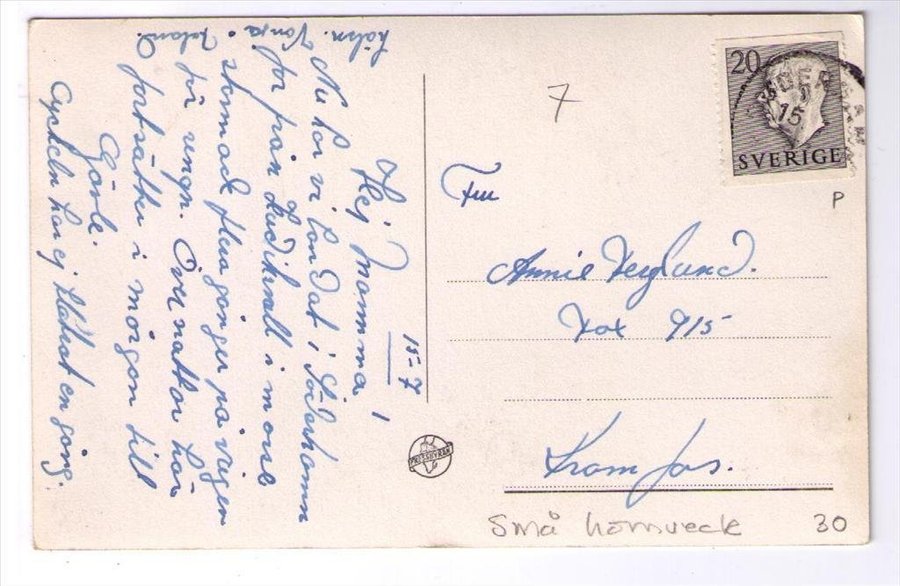 15-7
Hej Mamma!
Nu har vi landat i Söderhamn
for från Hudiksvall i morse
stannade flera gånger på vägen
för regn. Övernattar här
fortsätter i morgon till
Gävle.
Cykeln har ej klickat en gång.
hälsn.
7
20
15
SVERIGE
P
Fru
Annie Berglund.
Box 915
Kramfors.
PRESSBYRÅN
små hörnveck 30